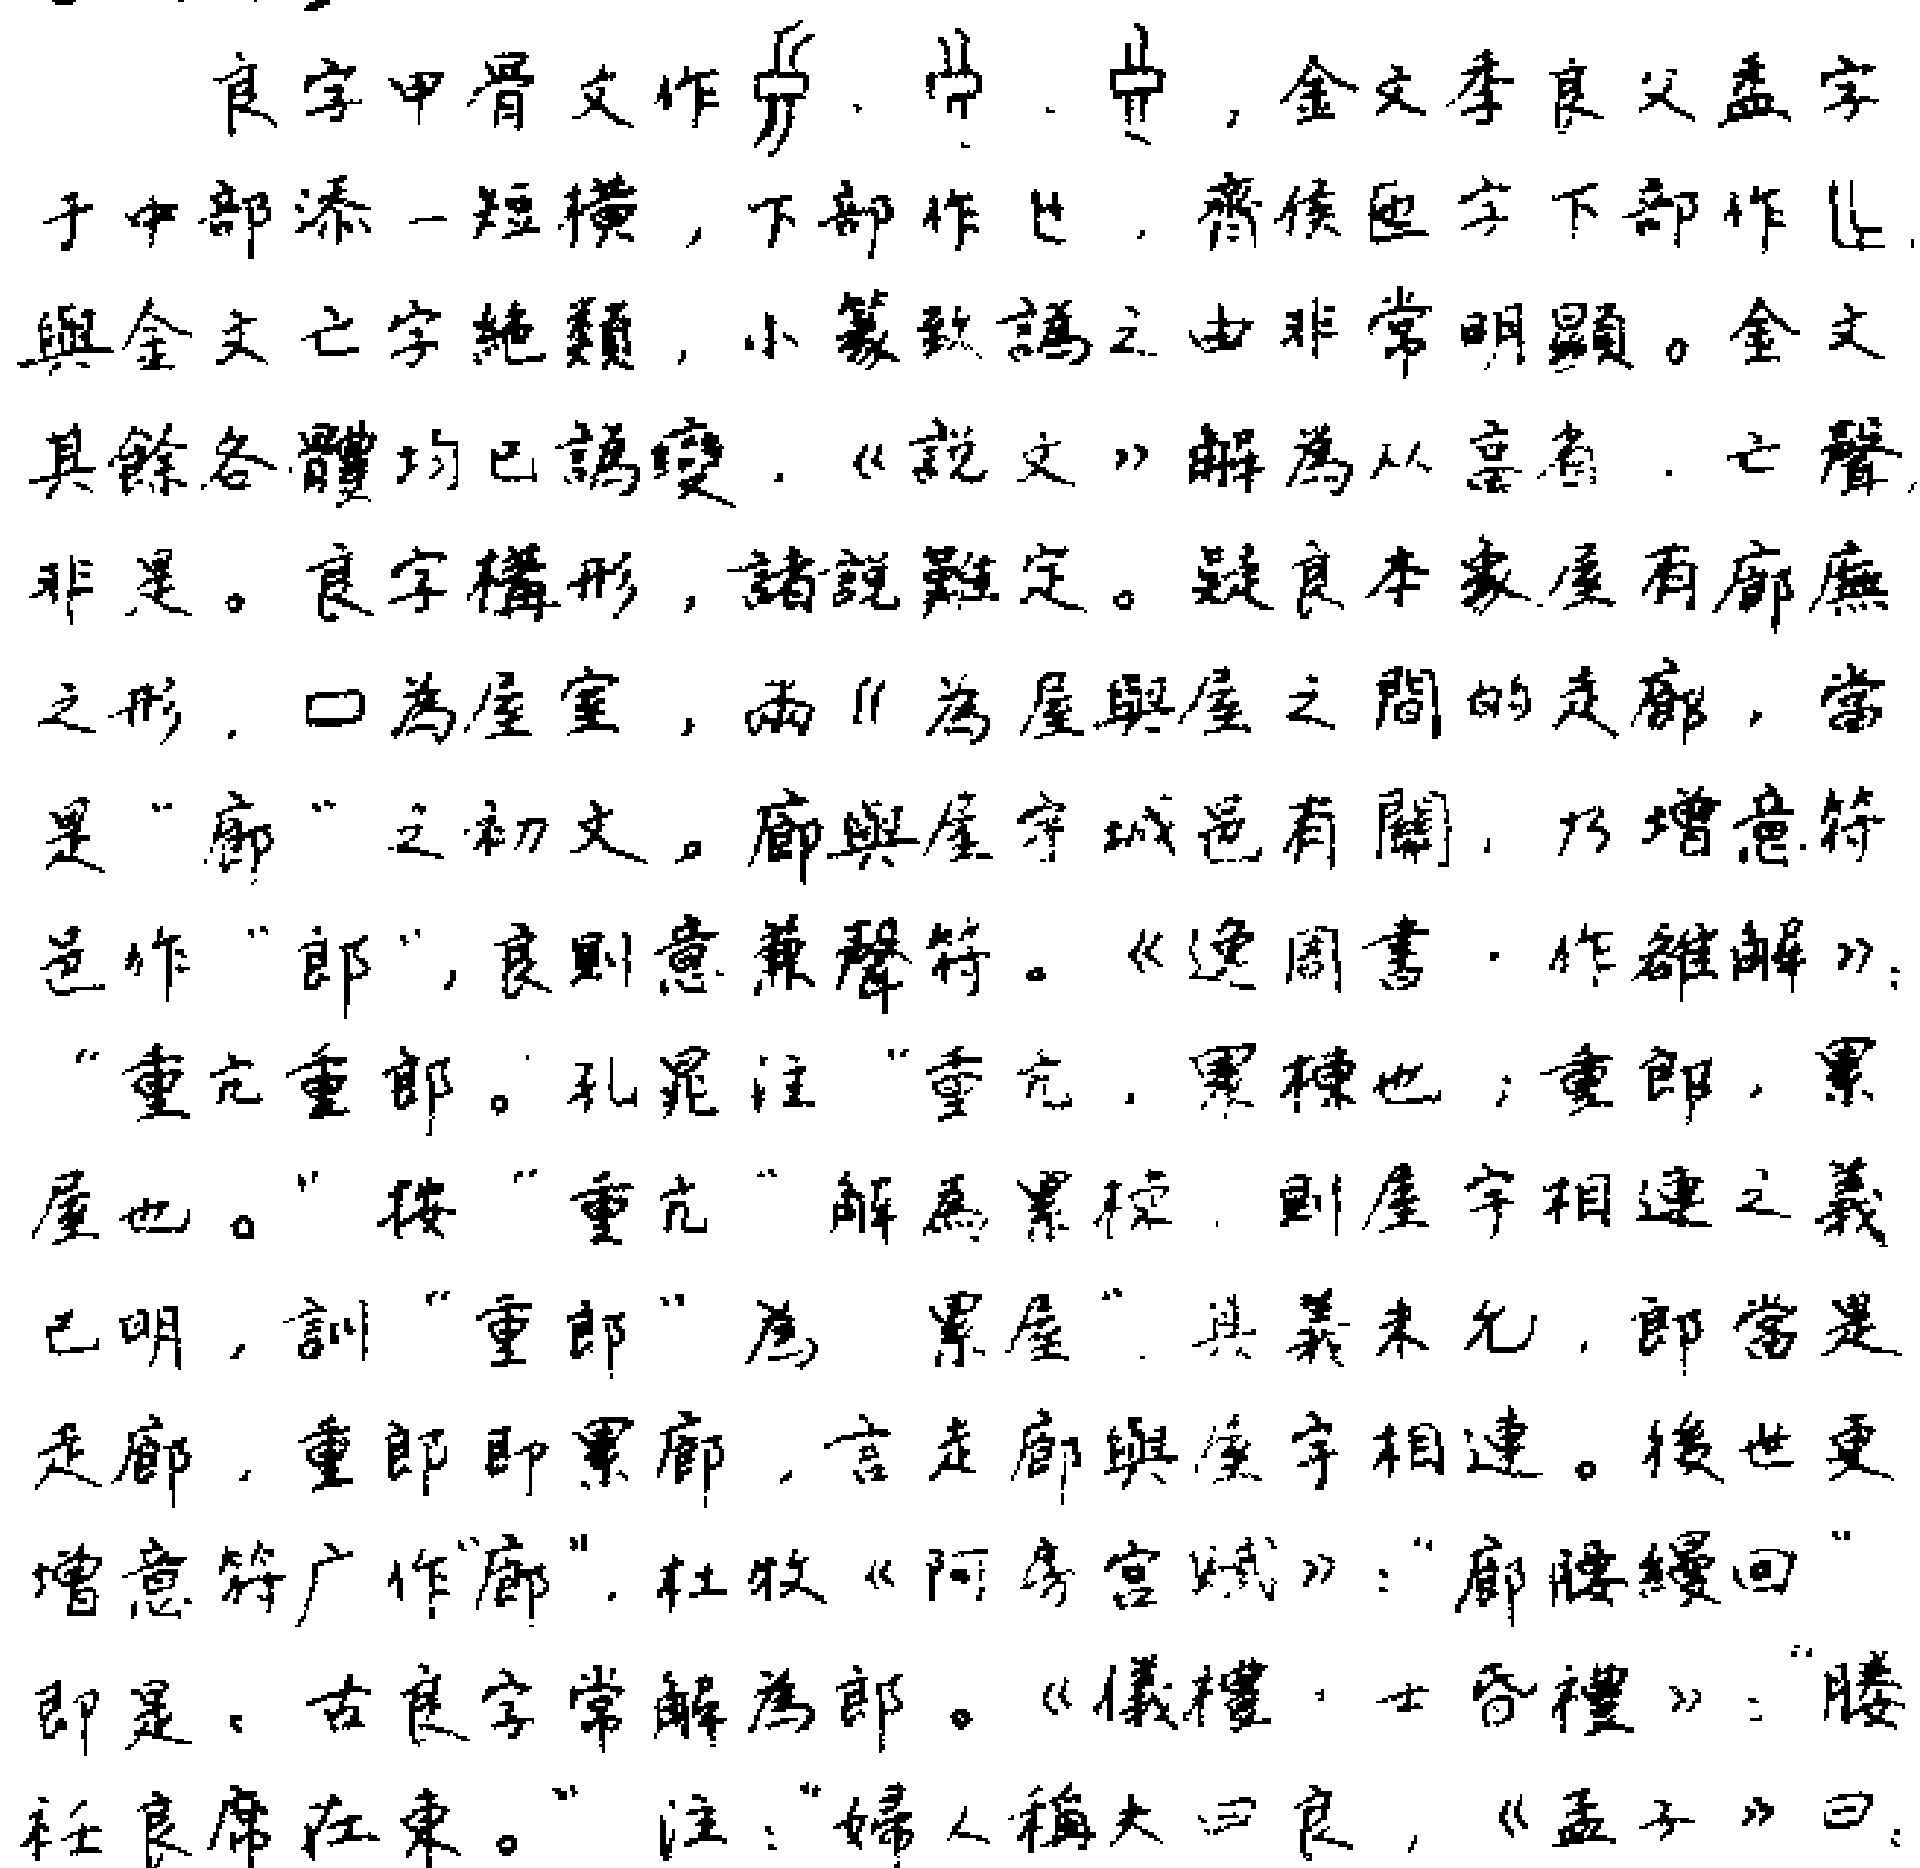 良字甲骨文作、、，金文季良父盉字
于中部添一短橫，下部作，齊侯匜字下部作，
與金文亡字絶類，小篆致譌之由非常明顯。金文
其餘各體均已譌變，《説文》解為从畗省，亡聲，
非是。良字構形，諸説難定。疑良本象屋有廊廡
之形，口為屋室，兩〃為屋與屋之間的走廊，當
是“廊”之初文。廊與屋宇城邑有關，乃增意符
邑作“郎”，良則意兼聲符。《逸周書·作雒解》：
“重亢重郎。孔晁注“重亢，累棟也；重郎，累
屋也。”按“重亢”解為累棟，則屋宇相連之義
已明，訓“重郎”為 累屋”其義未允，郎當是
走廊，重郎即累廊，言走廊與屋宇相連。後世更
增意符广作“廊”，杜牧《阿房宮賦》：“廊腰縵回”
即是。古良字常解為郎。《儀禮·士昏禮》：“媵
衽良席在東。”注：“婦人稱夫曰良，《孟子》曰：